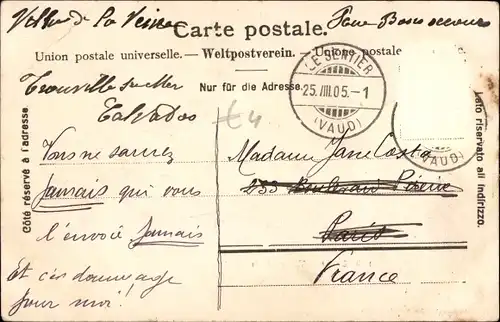 Carte postale.
Union postale universelle. — Weltpostverein. — Unione postale
Nur für die Adresse.
LE SENTIER
25.III.05.-1
(VAUD)
(VAUD)
Côté réservé à l'adresse.
Lato riservato all indirizzo.
Trouville sur Mer
Calvados
£4
Vous ne saurez
Jamais qui vous
l'envoie Jamais
Et c'est dommage
pour moi!
Madame Jane Costa
233 Boulevard Péreire
Paris
France